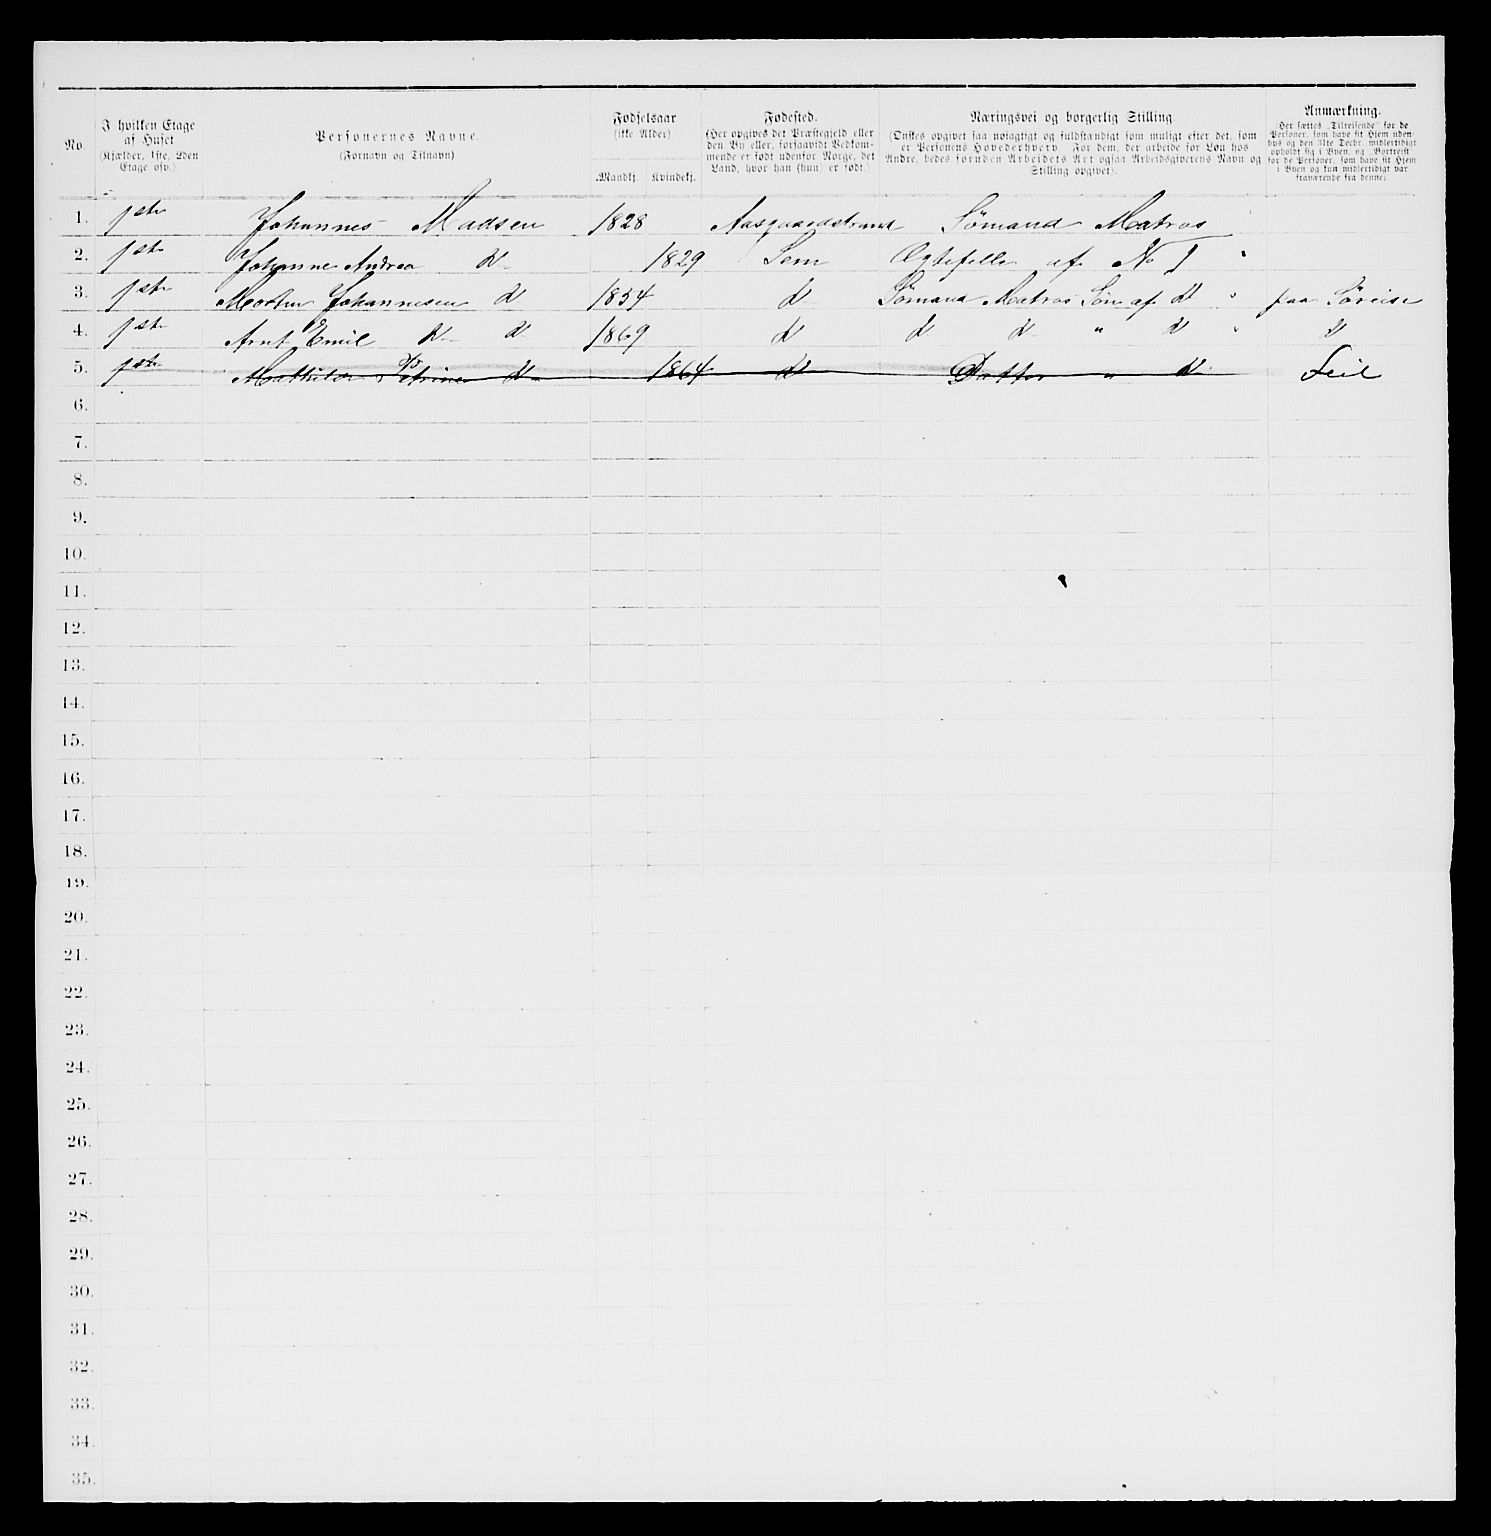 No.
I hvilken Etage
af Huset
(Kjælder, 1ste, 2den
Etage osv.).
Personernes Navne.
(Fornavn og Tilnavn)
Fødselsaar
(ikke Alder)
Mandkj.
Kvindekj.
Fødested.
(Her opgives det Præstegjeld eller
den By eller, forsaavidt Vedkom-
mende er født udenfor Norge, det
Land, hvor han (hun) er født.)
Næringsvei og borgerlig Stilling.
(Ønskes opgivet saa nøiagtigt og fuldstændigt som muligt efter det, som
er Personens Hovederhverv. For dem, der arbeide for Løn hos
Andre, bedes foruden Arbeidets Art ogsaa Arbeidsgiverens Navn og
Stilling opgivet).
Anmærkning.
(Her sættes „Tilreisende“ for de
Personer, som have sit Hjem uden-
bys og den 31te Decbr. midlertidigt
opholdt sig i Byen, og „Bortreist“
for de Personer, som have sit Hjem
i Byen og kun midlertidigt var
fraværende fra denne.
1. 1ste Johannes Madsen 1828 Aasgaardstrand Sømand Matros
2. 1ste Johanne Andrea do 1829 Sem Ægtefelle af No 1 "
3. 1ste Morten Johannesen do 1854 do Sømand Matros Søn af do " paa Søreise
4. 1ste Arnt Emil do do 1869 do do do " do " do
5. 1ste Mathilde Petrine do 1864 do Datter " do Feil
6.
7.
8.
9.
10.
11.
12.
13.
14.
15.
16.
17.
18.
19.
20.
21.
22.
23.
24.
25.
26.
27.
28.
29.
30.
31.
32.
33.
34.
35.